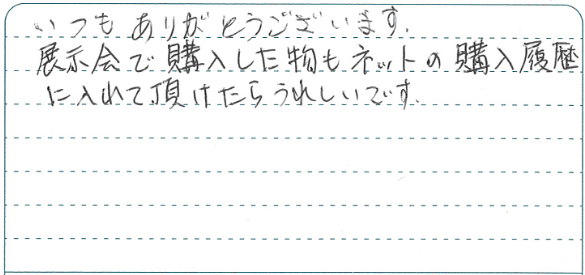 いつもありがとうございます.
展示会で購入した物もネットの購入履歴
に入れて頂けたらうれしいです.